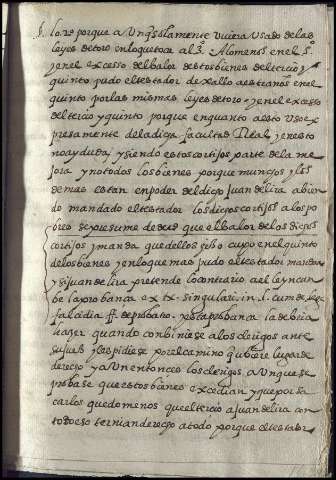 lo 2º porque aunq̃ solamente uviera usado de las
leyes de toro en lo que toca al 3º. Alomenos en el 5º
y en el excesso del balor destos bienes del tercio y
quinto pudo el testador dexallo a estraños en el
quinto por las mismas leyes de toro. y en el excesso
del tercio y quinto porque en quanto a esto uso ex
presamente de la dicha facultad Real, y en esto
no ay duda, y siendo estos cortijos parte de la me
jora y no todos los bienes porque muchos y los
demas estan en poder del dicho Juan de lira abien
do mandado el testador los dichos cortijos a los po
bres se presume de derº que el balor de los dichos
cortijos y manda que dellos hiço cupo en el quinto
de los bienes y en lo que mas pudo el testador mandar
y si Juan de lira pretende lo contrario a el le yncun
be la probança ex tx. singulari in l. cum de lege
falcidia ff. de probatio. y esta probança la debiera
haçer quando conbiniese a los clerigos ante
su jues y las pidiese por el camino q ubiere lugar de
derecho y aun entonces los clerigos aunque se
probase que estos bienes excedian y que por sa
carlos quedo menos que el tercio a Juan de lira con
todo eso tenian derecho a todo porque el testador